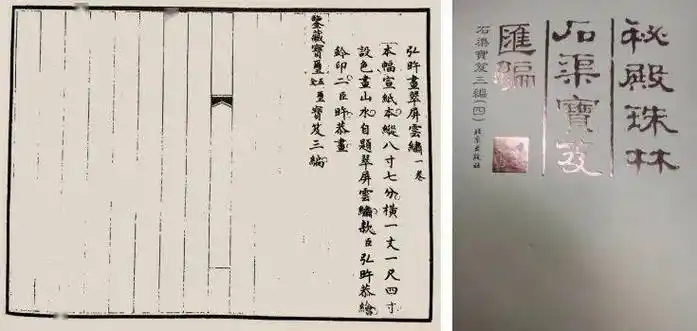 弘旿畫翠屏雲繡一卷
本幅宣紙本縱八寸七分橫一丈一尺四寸
設色畫山水自題翠屏雲繡款臣弘旿恭繪
鈐印二臣旿恭畫
鑒藏寶璽五璽寶笈三編
秘殿珠林
石渠寶笈
匯編
石渠寶笈三編(四)
北京出版社